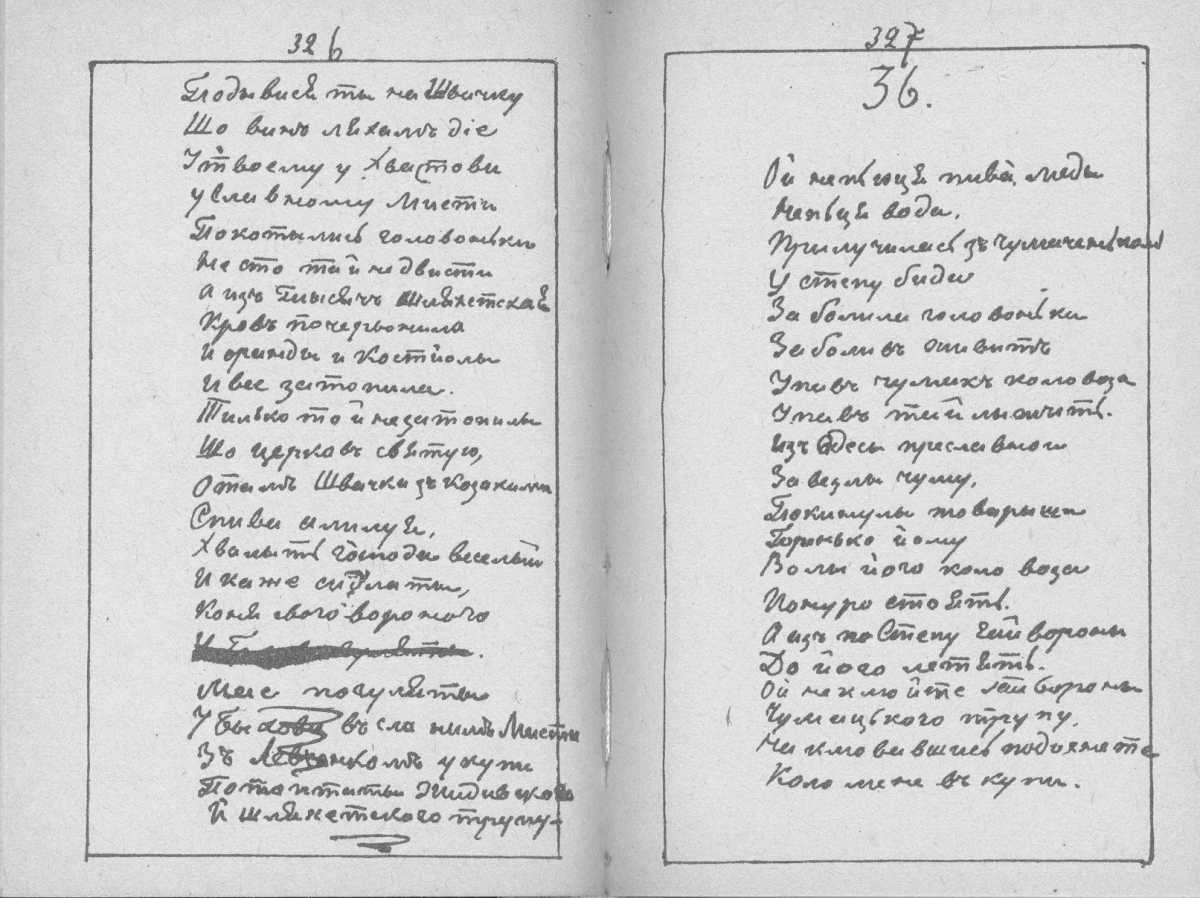 326
Подывися ты на Швачку
Що винъ ляхамъ діе
У твоему у Хвастови
у славному мисти
Покотылись головоньки
Не сто тай не двисти
А изъ тысячъ шляхетская
Кровъ почервонила
И оранды и костйолы
И все затопила.
Тилько то й не затопылы
Що церковъ святую,
Отамъ Швачка зъ козаками
Спива алилуя,
Хвалыть господа веселый
И каже сидлаты,
Коня свого вороного
Мае погуляты
У въ славнимъ Мисти
Зъ Левченкомъ у купи
Потоптаты жидивского
Й шляхетского трупу.
327
36.
Ой непьюця пива, меды
Непьця вода.
Прилучилась зъ чумаченьками
У степу бида
Заболила головонька
Заболивъ живитъ
Упавъ чумакъ коло воза
Упавъ тай лыжить.
Изъ Одесы преславнои
Завезлы чуму,
Покинулы товарыша
Горенько йому
Волы його коло воза
Понуро стоять.
А изъ по Степу гайвороны
До його летять.
Ой неклюйте гайвороны
Чумацького трупу.
Наклювавшись подохнете
Коло мене въ купи.